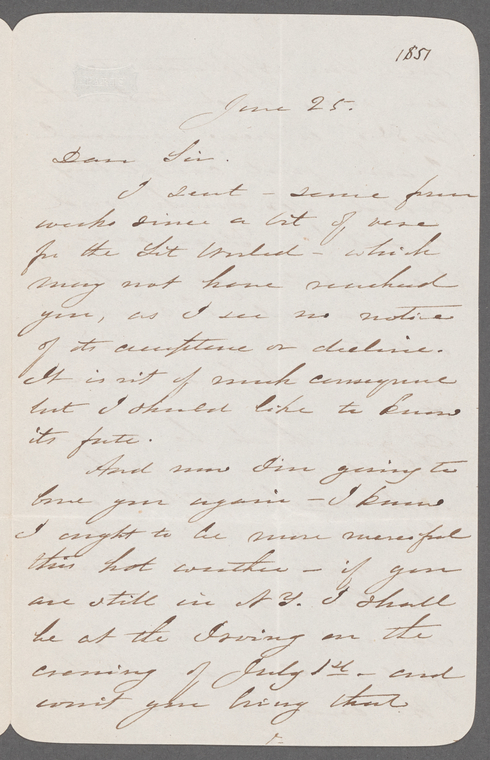 1851
June 25.
Dear Sir.
I sent - some four
weeks since a bit of verse
for the Lit World - which
may not have reached
you, as I see no notice
of its acceptance or decline.
It isn't of much consequence
but I should like to know
its fate.
And now I'm going to
bore you again - I know
I ought to be more merciful
this hot weather - if you
are still in N Y. I shall
be at the Irving on the
evening of July 1st - and
won't you bring that